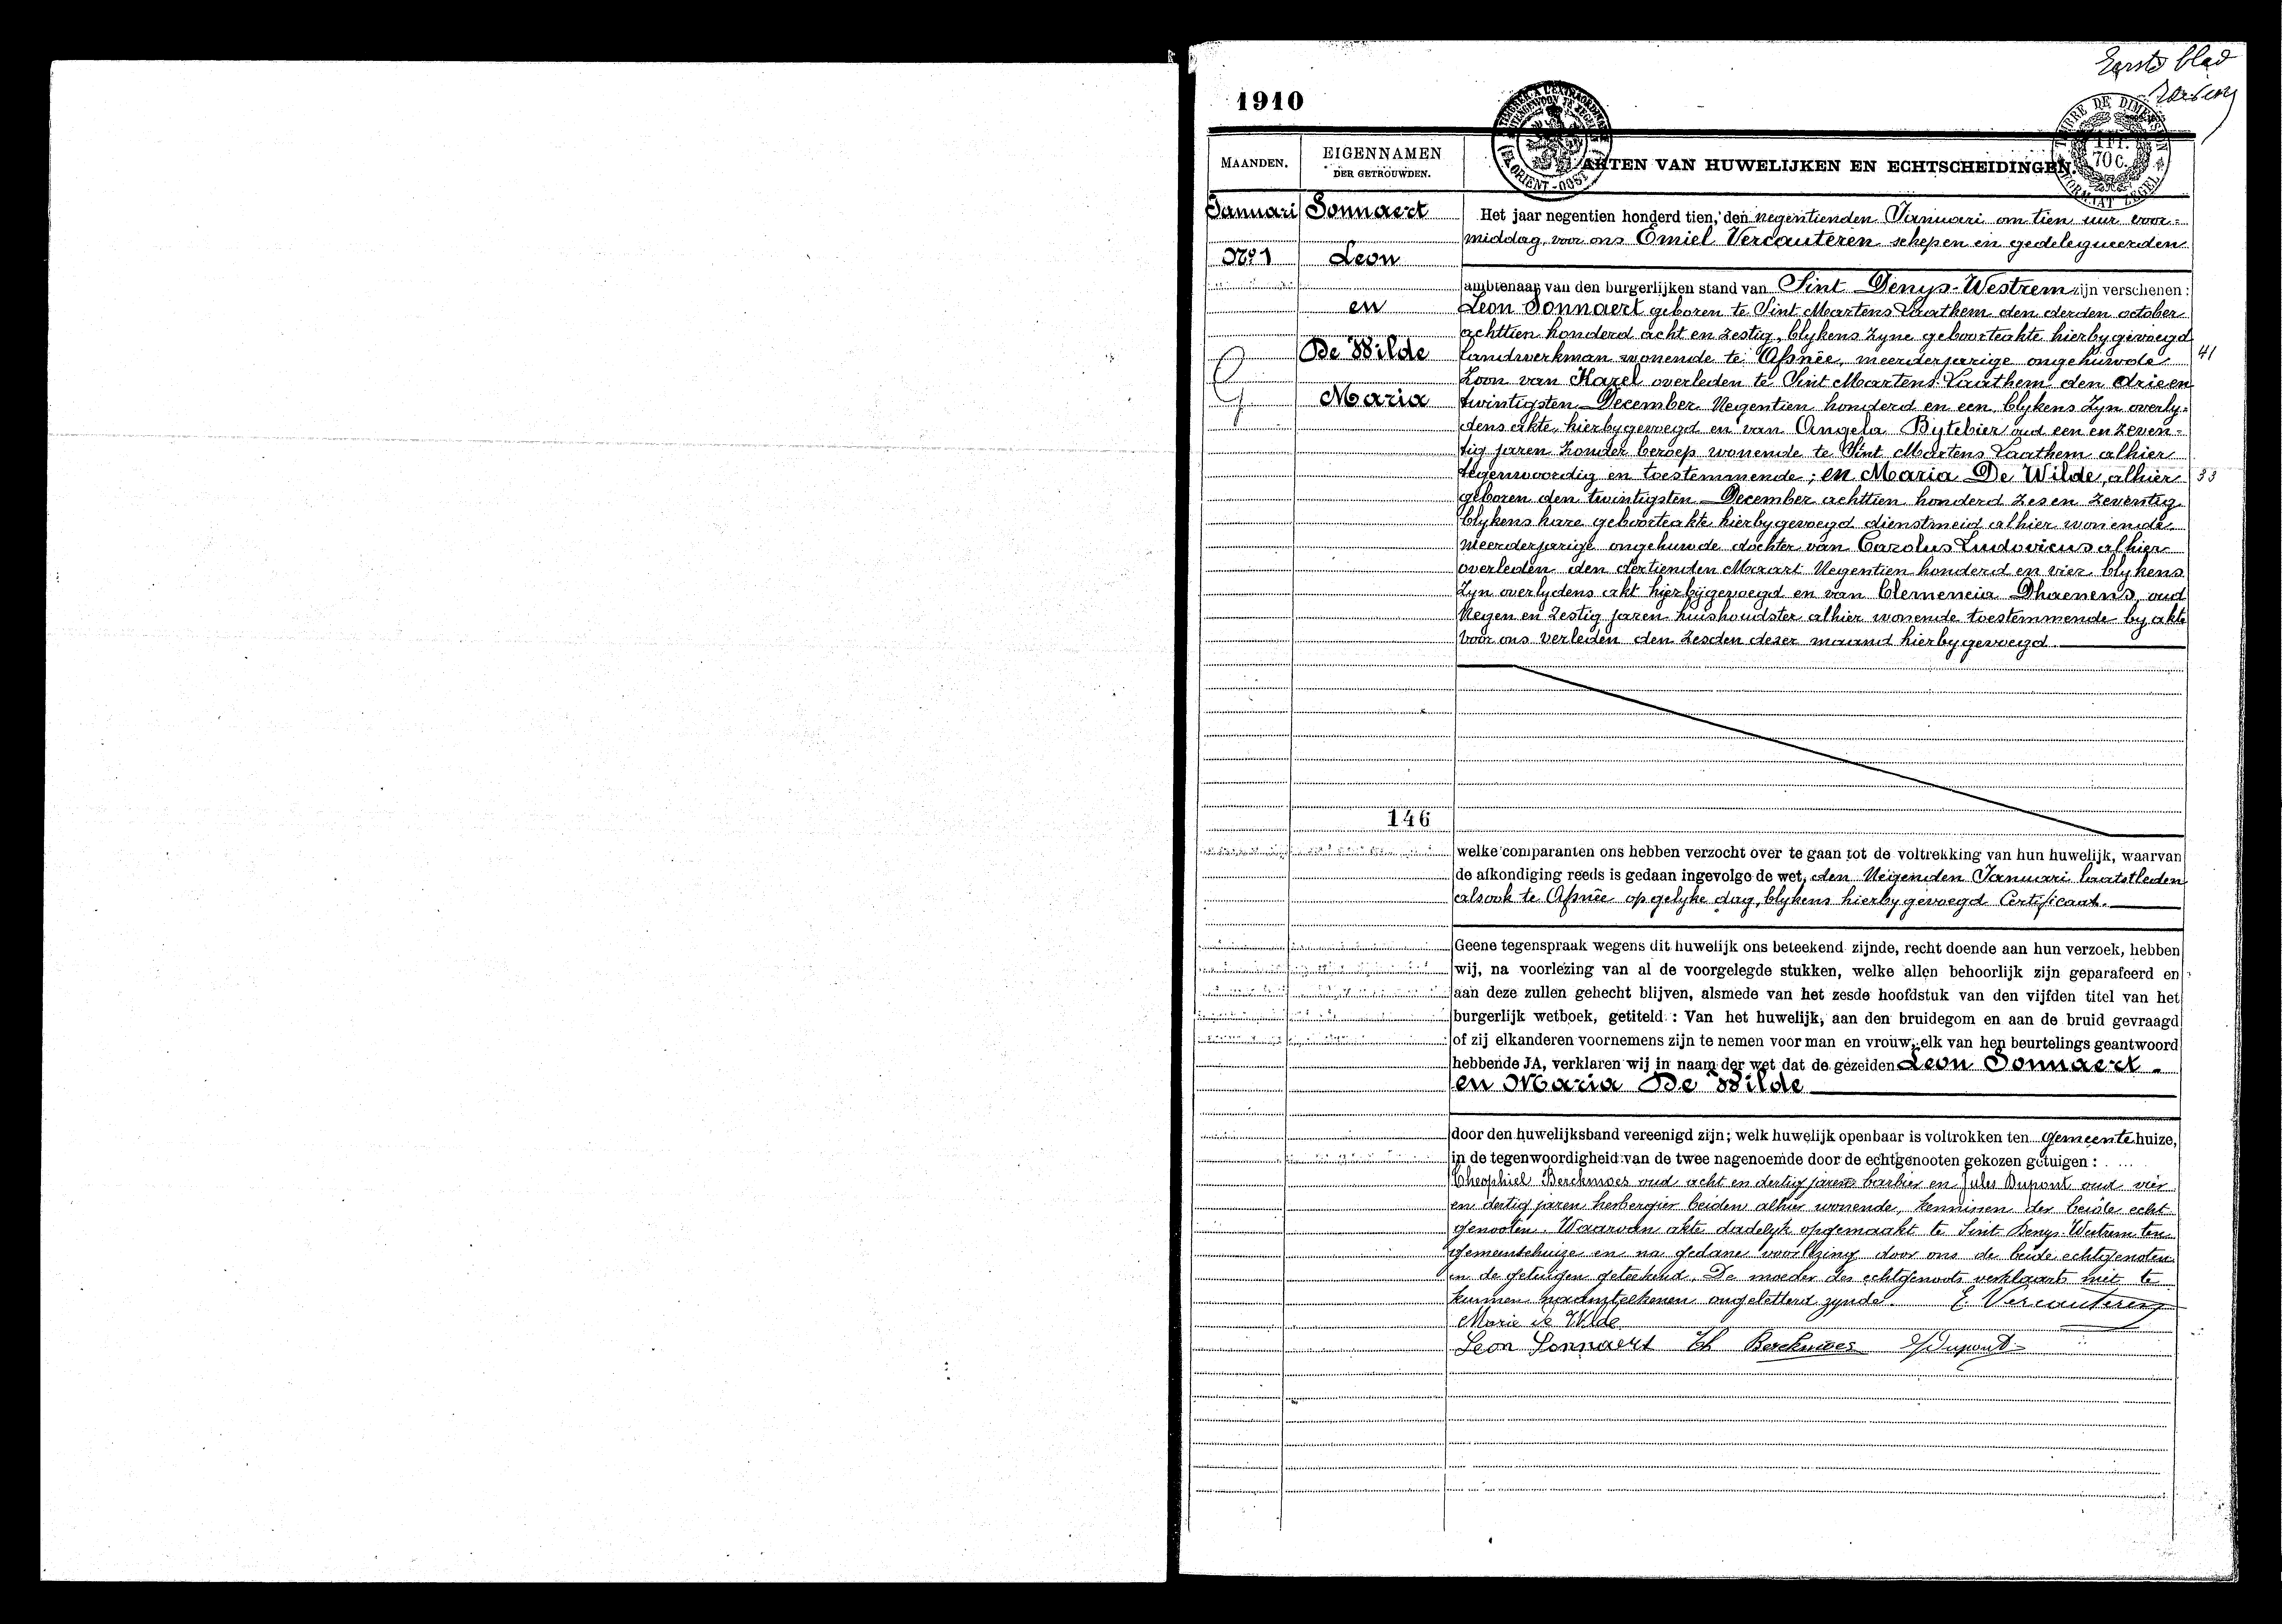 Eerste blad
1910
TIMBRE DE DIMENSION
1 FR.
70 C.
FORMAAT ZEGEL
FL. ORIENT - OOST
MAANDEN.
EIGENNAMEN
DER GETROUWDEN.
AKTEN VAN HUWELIJKEN EN ECHTSCHEIDINGEN.
Januari
No 1
Sonnaert
Leon
en
De Wilde
Maria
146
Het jaar negentien honderd tien, den negentienden Januari om tien uur voor-
middag, voor ons Emiel Vercauteren schepen en gedelegueerden
ambtenaar van den burgerlijken stand van Sint Denys-Westrem zijn verschenen:
Leon Sonnaert geboren te Sint Martens Laathem den derden october
achttien honderd acht en zestig, blykens zyne geboorteakte hierbygevoegd
landwerkman wonende te Afsnêe, meerderjarige ongehuwde 41
zoon van Karel overleden te Sint Martens Laathem den drie en
twintigsten December Negentien honderd en een blykens zyn overly-
dens akte, hierbygevoegd en van Angela Bytebier oud een en zeven-
tig jaren zonder beroep wonende te Sint Martens Laathem alhier
tegenwoordig en toestemmende; en Maria De Wilde, alhier 33
geboren den twintigsten December achttien honderd zes en zeventig
blykens hare geboorteakte hierbygevoegd dienstmeid alhier wonende
meerderjarige ongehuwde dochter van Carolus Ludovicus alhier
overleden den dertienden Maart Negentien honderd en vier blykens
zyn overlydens akt hierbijgevoegd en van Clemencia Dhaenens, oud
Negen en zestig jaren huishoudster alhier wonende toestemmende by akte
voor ons verleden den zesden dezer maand hierbygevoegd.
welke comparanten ons hebben verzocht over te gaan tot de voltrekking van hun huwelijk, waarvan
de afkondiging reeds is gedaan ingevolge de wet, den Negenden Januari laatstleden
alsook te Afsnêe op gelyke dag, blykens hierbygevoegd Certificaat.
Geene tegenspraak wegens dit huwelijk ons beteekend zijnde, recht doende aan hun verzoek, hebben
wij, na voorlezing van al de voorgelegde stukken, welke allen behoorlijk zijn geparafeerd en
aan deze zullen gehecht blijven, alsmede van het zesde hoofdstuk van den vijfden titel van het
burgerlijk wetboek, getiteld : Van het huwelijk, aan den bruidegom en aan de bruid gevraagd
of zij elkanderen voornemens zijn te nemen voor man en vrouw, elk van hen beurtelings geantwoord
hebbende JA, verklaren wij in naam der wet dat de gezeiden Leon Sonnaert
en Maria De Wilde
door den huwelijksband vereenigd zijn; welk huwelijk openbaar is voltrokken ten gemeentehuize,
in de tegenwoordigheid van de twee nagenoemde door de echtgenooten gekozen getuigen :
Theophiel Berckmoes oud acht en dertig jaren barbier en Jules Dupont oud vier
en dertig jaren herbergier beiden alhier wonende, kennissen der beide echt
genooten. Waarvan akte dadelyk opgemaakt te Sint Denys-Westrem ten
gemeentehuize en na gedane voorlezing door ons de beide echtgenoten
en de getuigen geteekend. De moeder des echtgenoots verklaart niet te
kunnen naamteekenen ongeletterd zynde. E. Vercauteren
Marie de Wilde
Leon Sonnaert Th Berckmoes J Dupont